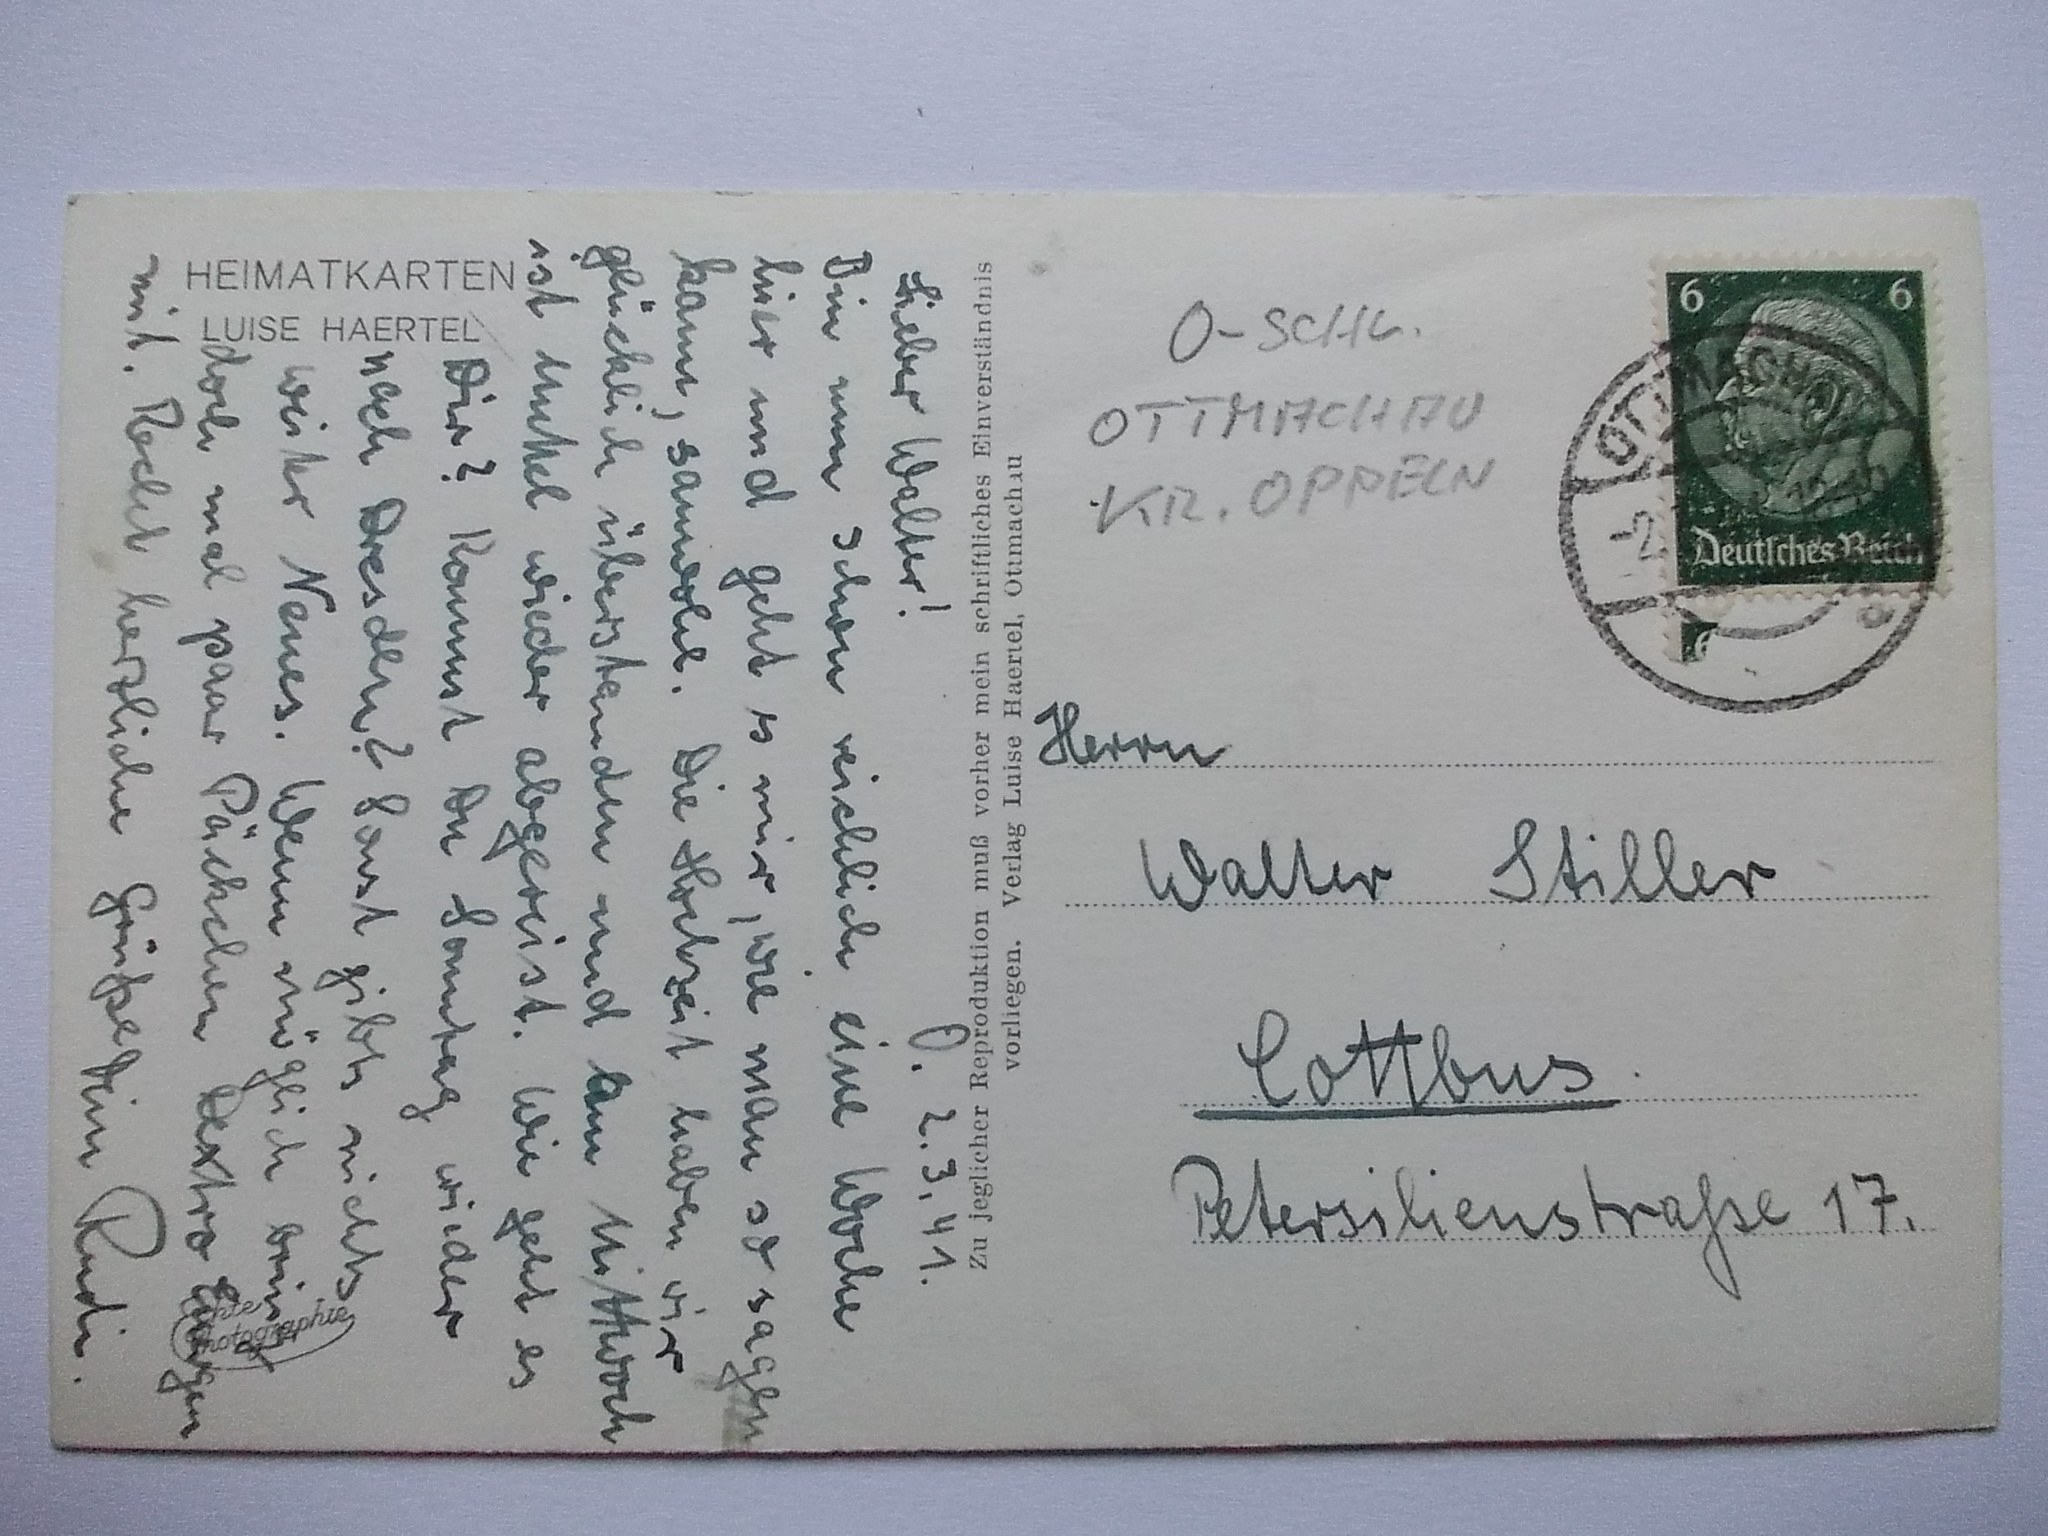 HEIMATKARTEN
LUISE HAERTEL
O. 2.3.41.
Lieber Walter!
Bin nun schon reichlich eine Woche
hier und geht es mir, wie man so sagen
kann, sauwohl. Die Hochzeit haben wir
glücklich überstanden und am Mittwoch
ist Muttel wieder abgereist. Wie geht es
Dir? Kommst Du Sonntag wieder
nach Dresden? Sonst gibts nichts
weiter Neues. Wenn möglich bring
doch mal paar Päckchen Dextro
mit. Recht herzliche Grüße Dein Rudi.
Echte
Photographie
Zu jeglicher Reproduktion muß vorher mein schriftliches Einverständnis
vorliegen. Verlag Luise Haertel, Ottmachau
O-SCHL.
OTTMACHAU
KR. OPPELN
6 6
Deutsches Reich
OTTMACHAU
-2.
Herrn
Walter Stiller
Cottbus.
Petersilienstraße 17.